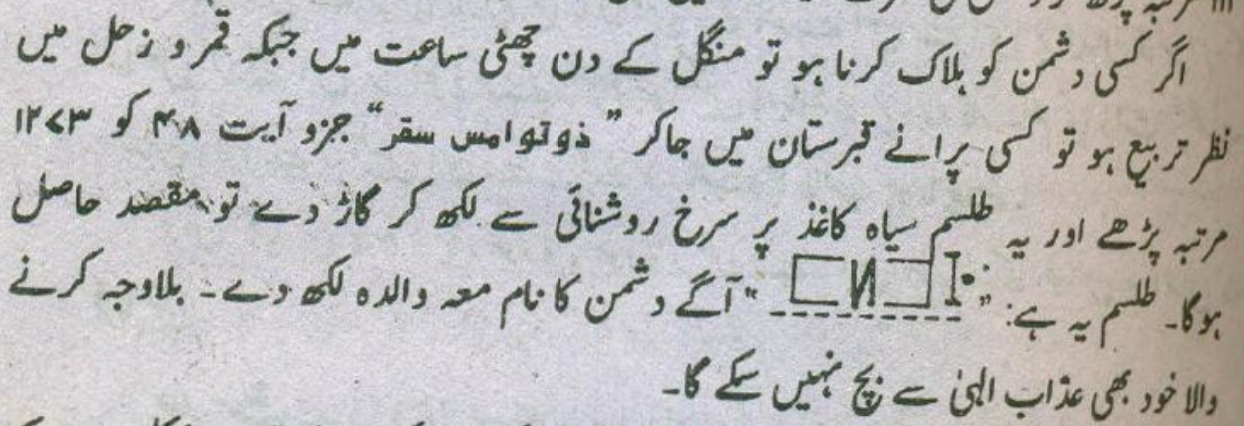 اگر کسی دشمن کو ہلاک کرنا ہو تو منگل کے دن چھٹی ساعت میں جبکہ قمر و زحل میں
نظر تربیع ہو تو کسی پرانے قبرستان میں جاکر "ذوقوامس سقر" جزو آیت ۴۸ کو ۱۲۷۳
مرتبہ پڑھے اور یہ طلسم سیاہ کاغذ پر سرخ روشنائی سے لکھ کر گاڑ دے تو مقصد حاصل
ہوگا۔ طلسم یہ ہے: " " آگے دشمن کا نام معہ والدہ لکھ دے۔ بلاوجہ کرنے
والا خود بھی عذاب الہٰی سے بچ نہیں سکے گا۔